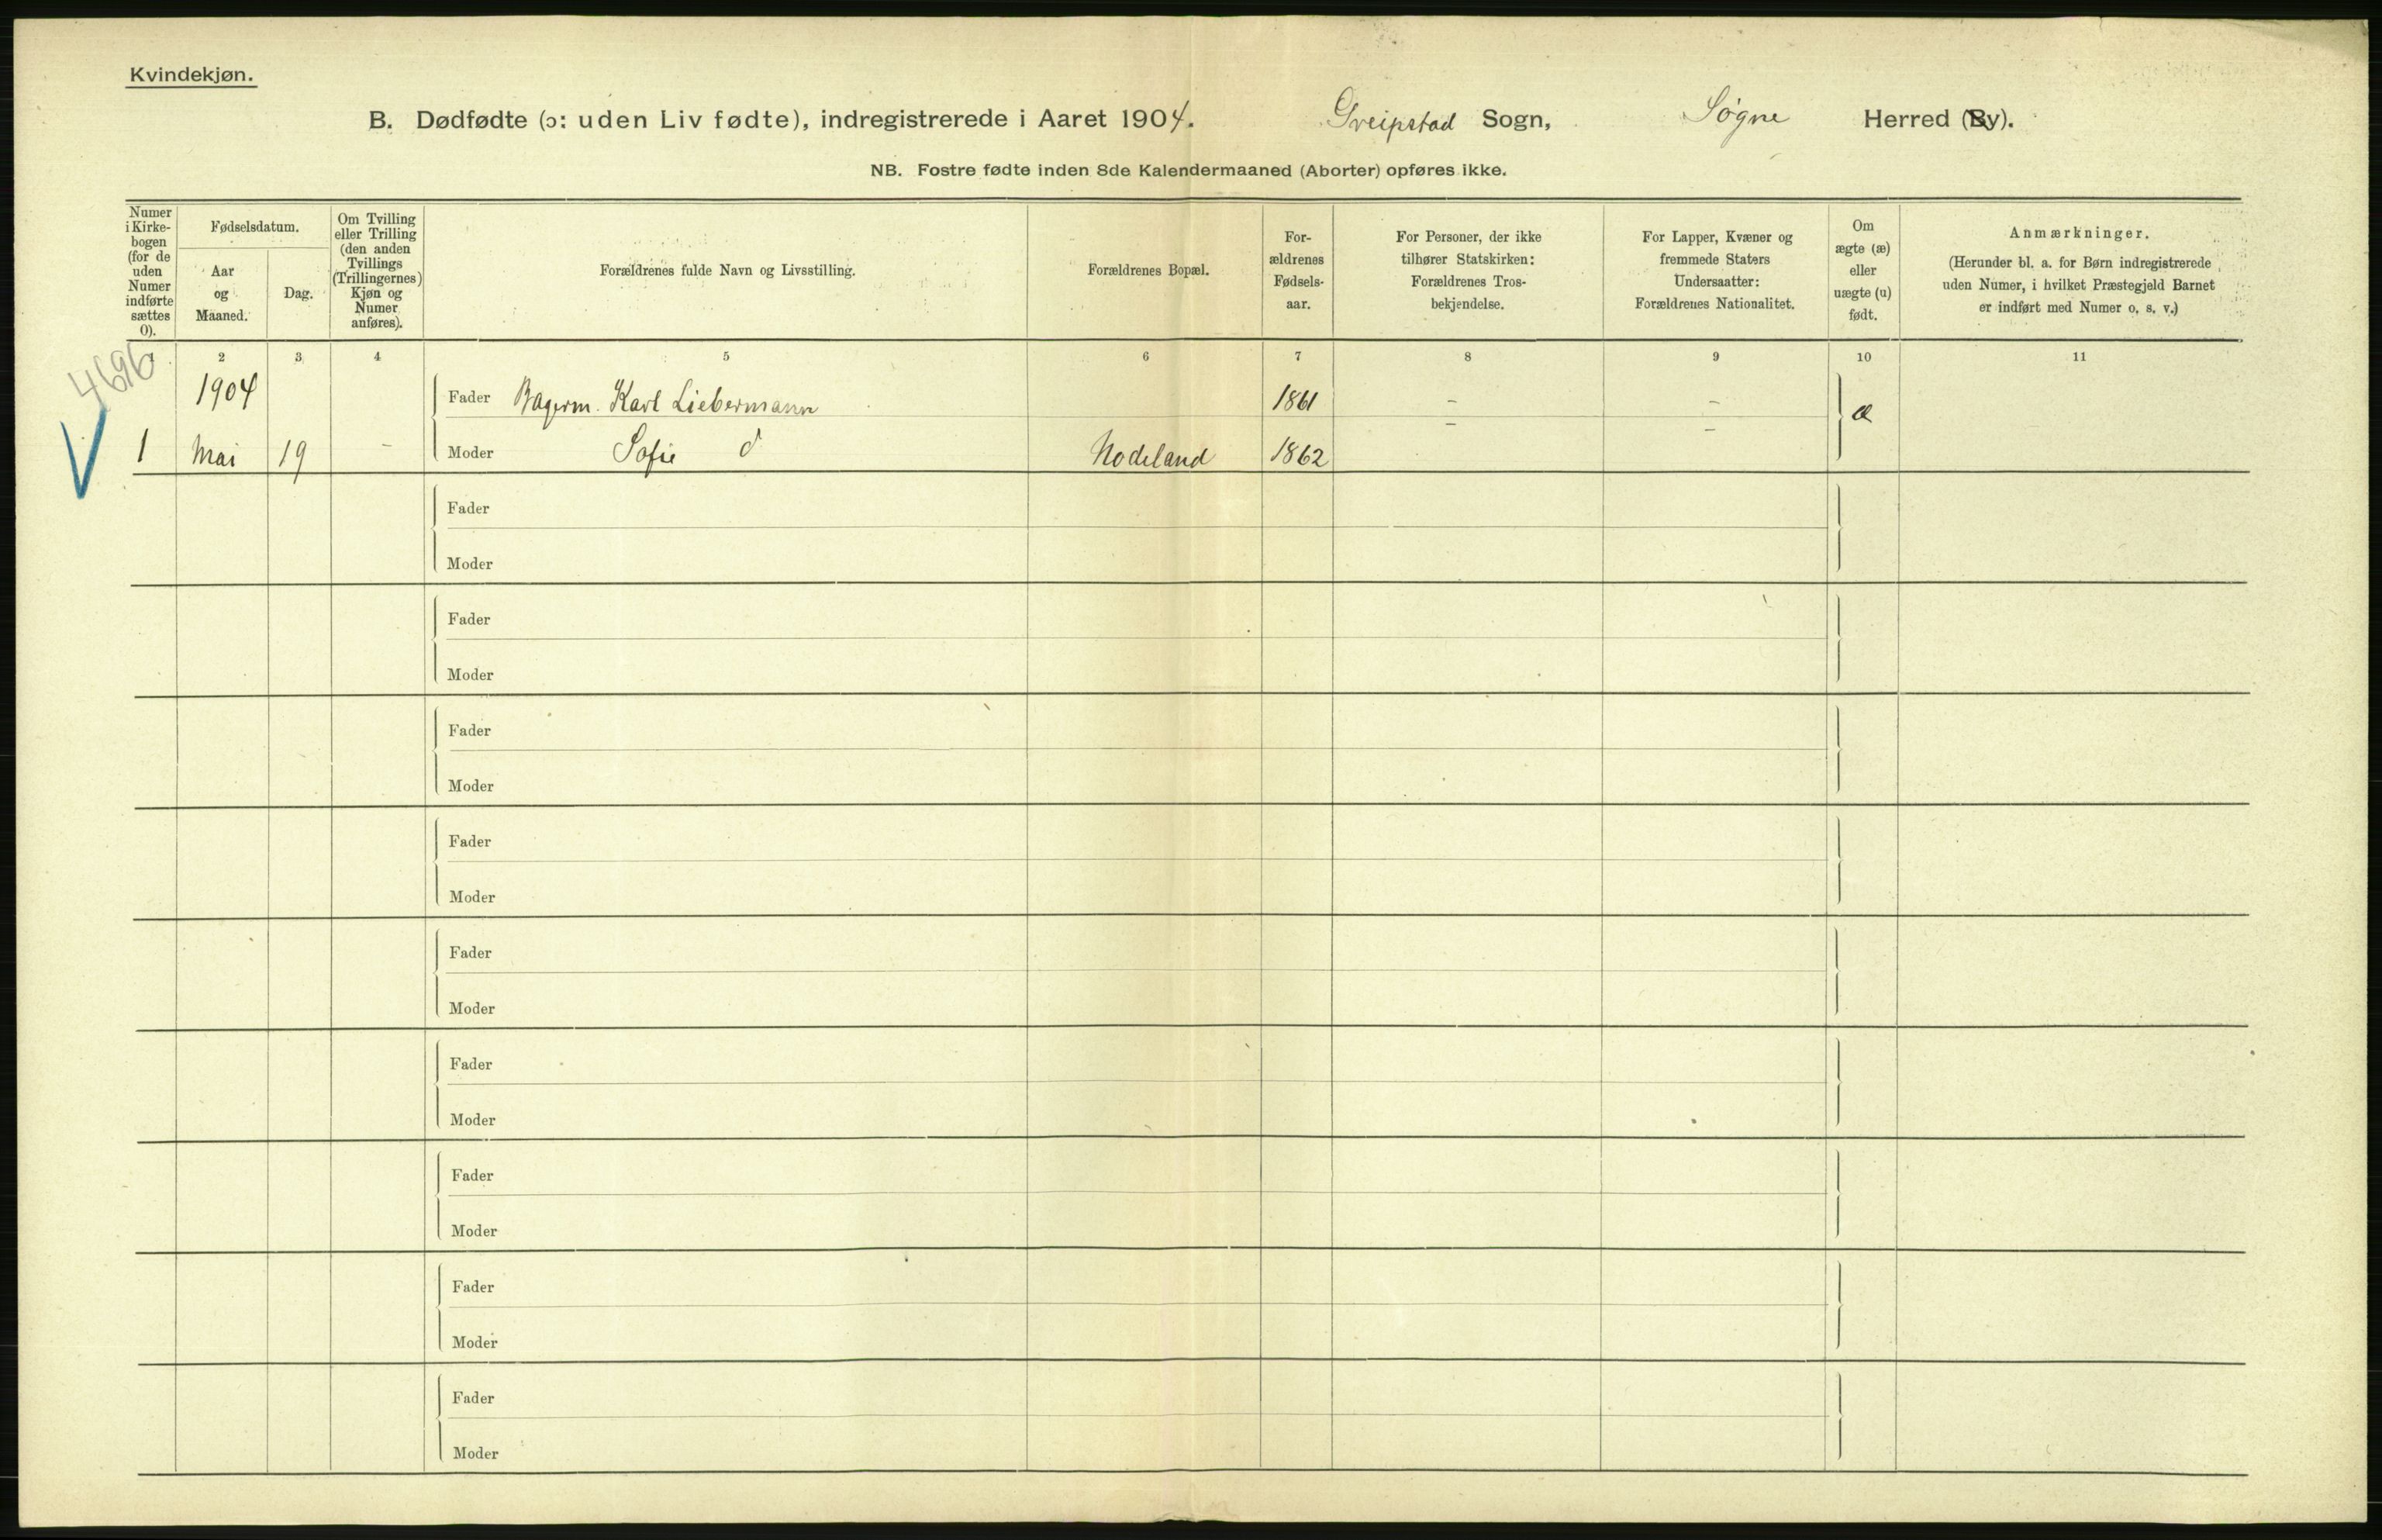 Kvindekjøn.
B. Dødfødte (ɔ: uden Liv fødte), indregistrerede i Aaret 1904. Greipstad Sogn, Søgne Herred (By).
NB. Fostre fødte inden 8de Kalendermaaned (Aborter) opføres ikke.
Numer i Kirkebogen (for de uden Numer indførte sættes 0).
Fødselsdatum.
Aar og Maaned.
Dag.
Om Tvilling eller Trilling (den anden Tvillings (Trillingernes) Kjøn og Numer anføres).
Forældrenes fulde Navn og Livsstilling.
Forældrenes Bopæl.
For-ældrenes Fødsels-aar.
For Personer, der ikke tilhører Statskirken: Forældrenes Tros-bekjendelse.
For Lapper, Kvæner og fremmede Staters Undersaatter: Forældrenes Nationalitet.
Om ægte (æ) eller uægte (u) født.
Anmærkninger.
(Herunder bl. a. for Børn indregistrerede uden Numer, i hvilket Præstegjeld Barnet er indført med Numer o. s. v.)
1 2 3 4 5 6 7 8 9 10 11
4696
1904 Fader Bagerm. Karl Liebermann 1861 - - æ
1 Mai 19 - Moder Sofie d Nodeland 1862 - -
Fader
Moder
Fader
Moder
Fader
Moder
Fader
Moder
Fader
Moder
Fader
Moder
Fader
Moder
Fader
Moder
Fader
Moder